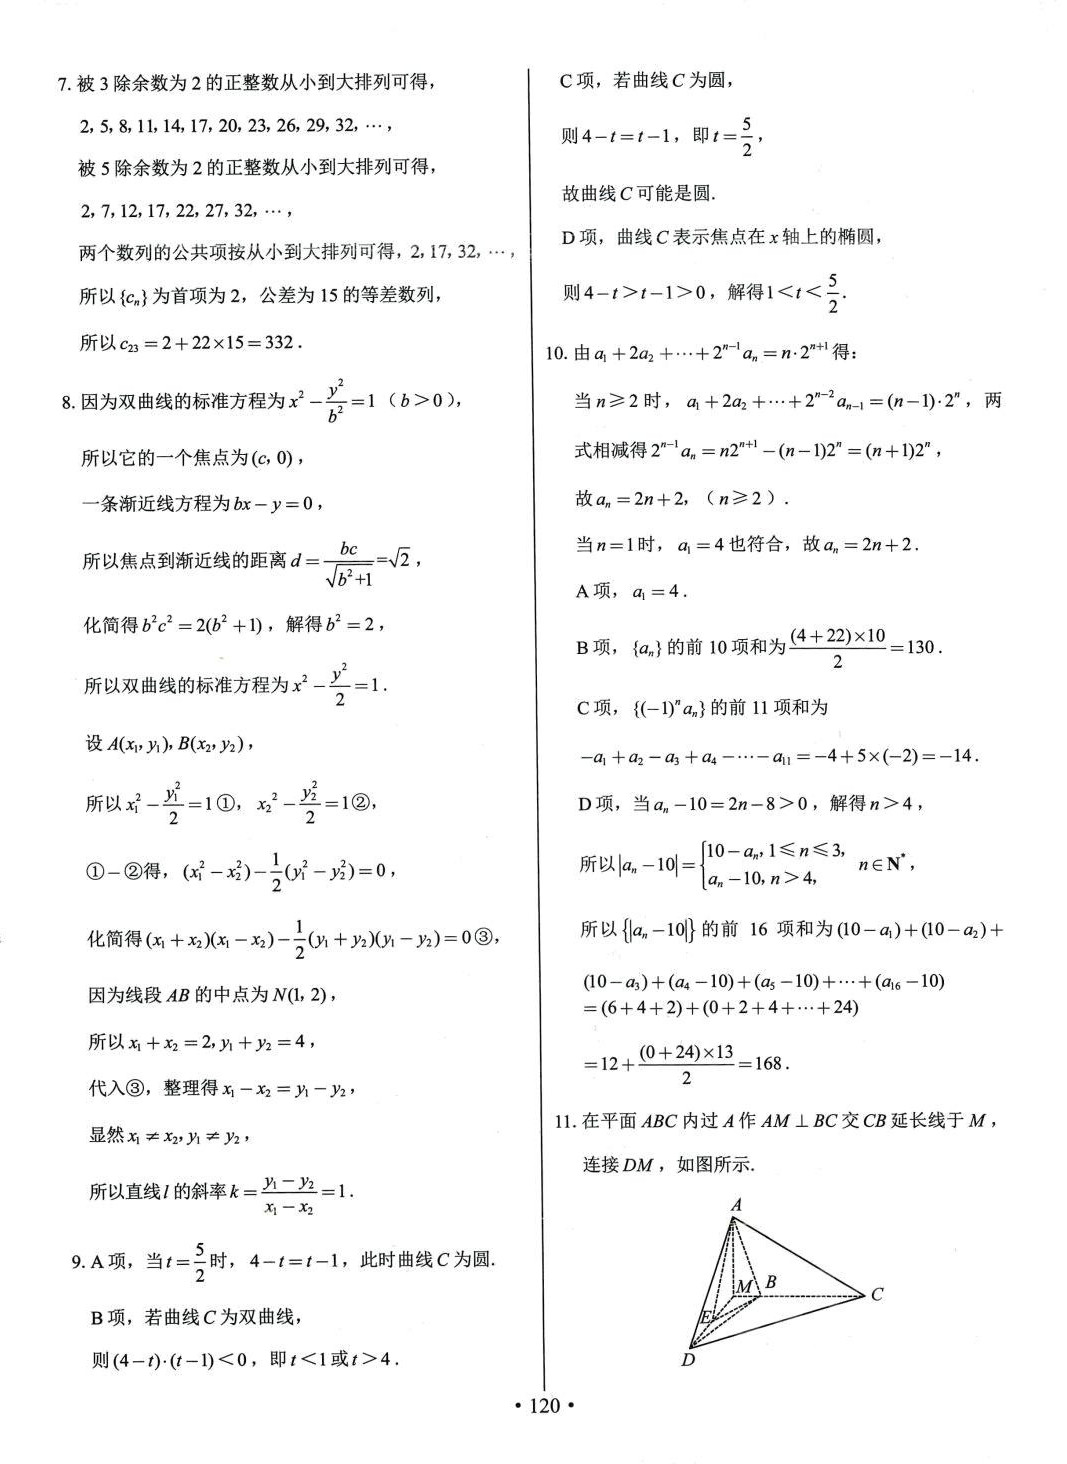 7. 被 3 除余数为 2 的正整数从小到大排列可得，
2, 5, 8, 11, 14, 17, 20, 23, 26, 29, 32, ⋯，
被 5 除余数为 2 的正整数从小到大排列可得，
2, 7, 12, 17, 22, 27, 32, ⋯，
两个数列的公共项按从小到大排列可得，2, 17, 32, ⋯，
所以 {cₙ} 为首项为 2，公差为 15 的等差数列，
所以 c₂₃ = 2 + 22×15 = 332．
8. 因为双曲线的标准方程为 x² − y²/b² = 1（b＞0），
所以它的一个焦点为 (c, 0)，
一条渐近线方程为 bx − y = 0，
所以焦点到渐近线的距离 d = bc/√(b²+1) = √2，
化简得 b²c² = 2(b² + 1)，解得 b² = 2，
所以双曲线的标准方程为 x² − y²/2 = 1．
设 A(x₁, y₁), B(x₂, y₂)，
所以 x₁² − y₁²/2 = 1①，x₂² − y₂²/2 = 1②，
①−②得，(x₁² − x₂²) − 1/2(y₁² − y₂²) = 0，
化简得 (x₁ + x₂)(x₁ − x₂) − 1/2(y₁ + y₂)(y₁ − y₂) = 0③，
因为线段 AB 的中点为 N(1, 2)，
所以 x₁ + x₂ = 2, y₁ + y₂ = 4，
代入③，整理得 x₁ − x₂ = y₁ − y₂，
显然 x₁ ≠ x₂, y₁ ≠ y₂，
所以直线 l 的斜率 k = (y₁ − y₂)/(x₁ − x₂) = 1．
9. A 项，当 t = 5/2 时，4 − t = t − 1，此时曲线 C 为圆.
B 项，若曲线 C 为双曲线，
则 (4 − t)·(t − 1)＜0，即 t＜1 或 t＞4．
C 项，若曲线 C 为圆，
则 4 − t = t − 1，即 t = 5/2，
故曲线 C 可能是圆.
D 项，曲线 C 表示焦点在 x 轴上的椭圆，
则 4 − t＞t − 1＞0，解得 1＜t＜5/2．
10. 由 a₁ + 2a₂ + ⋯ + 2ⁿ⁻¹aₙ = n·2ⁿ⁺¹ 得：
当 n ≥ 2 时，a₁ + 2a₂ + ⋯ + 2ⁿ⁻²aₙ₋₁ = (n − 1)·2ⁿ，两
式相减得 2ⁿ⁻¹aₙ = n2ⁿ⁺¹ − (n − 1)2ⁿ = (n + 1)2ⁿ，
故 aₙ = 2n + 2，（n ≥ 2）．
当 n = 1 时，a₁ = 4 也符合，故 aₙ = 2n + 2．
A 项，a₁ = 4．
B 项，{aₙ} 的前 10 项和为 (4 + 22)×10/2 = 130．
C 项，{(−1)ⁿaₙ} 的前 11 项和为
−a₁ + a₂ − a₃ + a₄ − ⋯ − a₁₁ = −4 + 5×(−2) = −14．
D 项，当 aₙ − 10 = 2n − 8＞0，解得 n＞4，
所以 |aₙ − 10| = {10 − aₙ, 1 ≤ n ≤ 3, aₙ − 10, n＞4, n ∈ N*，
所以 {|aₙ − 10|} 的前 16 项和为 (10 − a₁) + (10 − a₂) +
(10 − a₃) + (a₄ − 10) + (a₅ − 10) + ⋯ + (a₁₆ − 10)
= (6 + 4 + 2) + (0 + 2 + 4 + ⋯ + 24)
= 12 + (0 + 24)×13/2 = 168．
11. 在平面 ABC 内过 A 作 AM ⊥ BC 交 CB 延长线于 M，
连接 DM，如图所示.
A
M
B
C
E
D
• 120 •